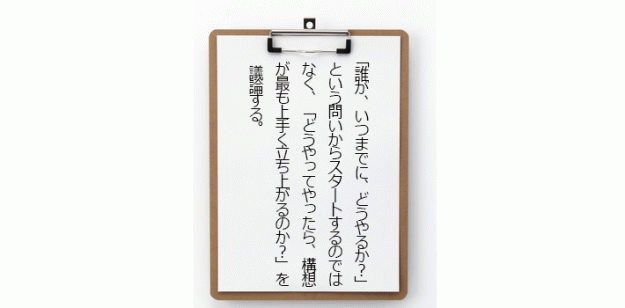 「誰が、いつまでに、どうやるか？」
という問いからスタートするのでは
なく、「どうやってやったら、構想
が最も上手く立ち上がるのか？」を
議論する。